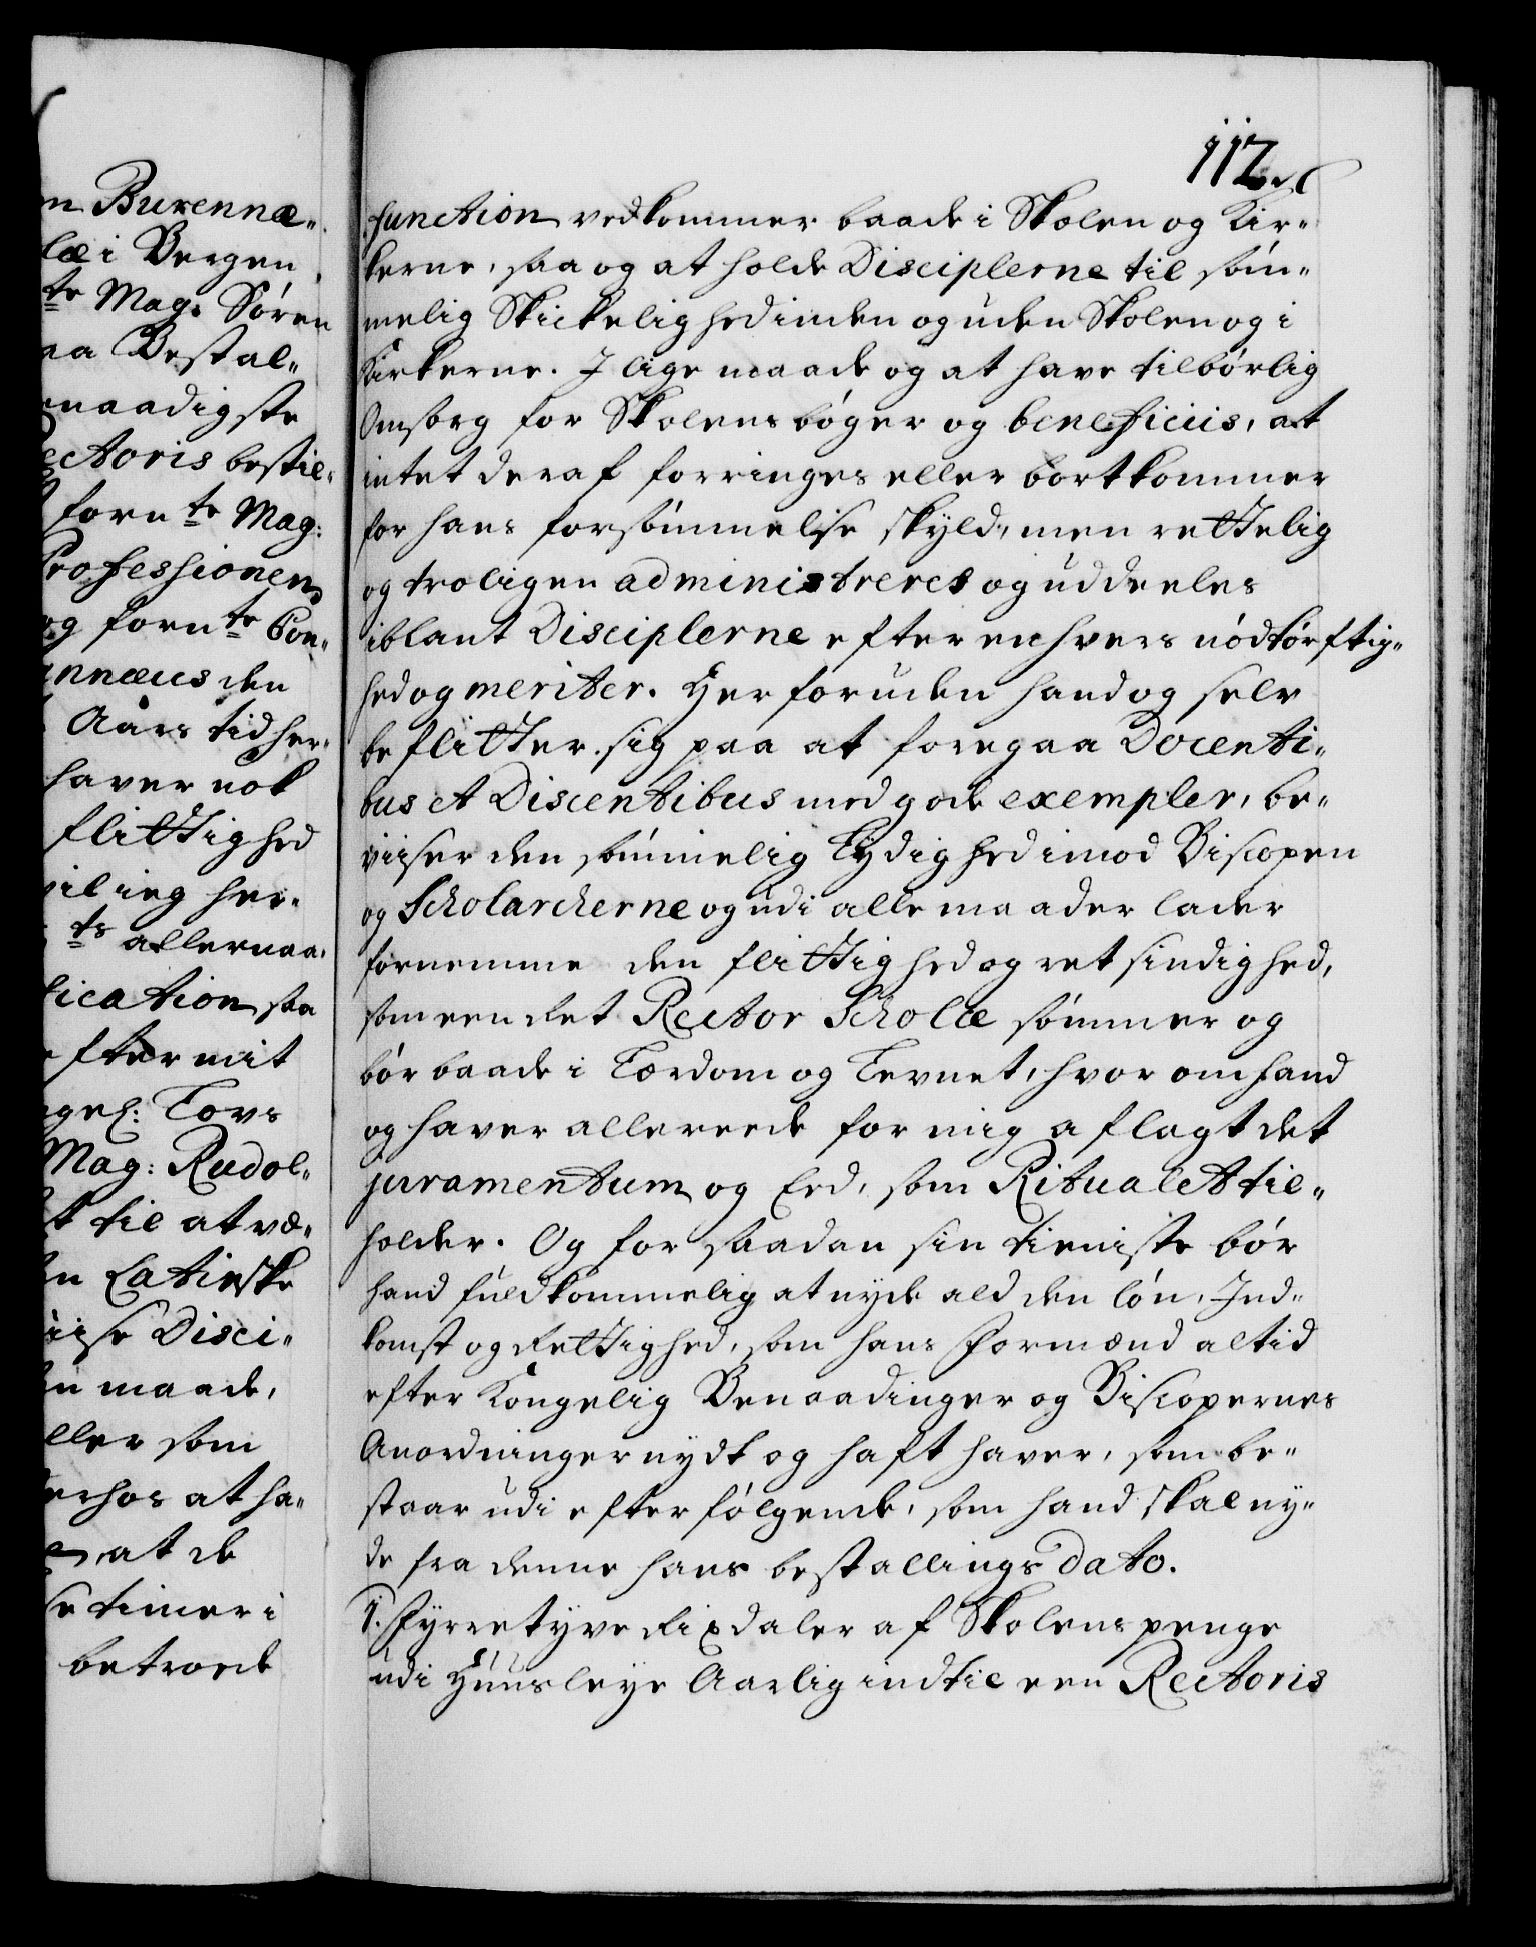 n Burennæ-
læ i Bergen,
te Mag: Sören
aa Bestal-
naadigste
ectoris bestil-
fornte Mag:
Professionen
og fornte Con-
nnæus den
Aars tid her-
haver nok
flittighed
vil ieg her-
ts allernaa-
fication saa
efter mit
gel: Lovs
Mag: Rudol-
t til at væ-
n Latinske
iise Disci-
n maade,
ller som
erhos at ha-
at de
se timer i
betroede
112.
function vedkommer baade i Skolen og Kir-
kerne, saa og at holde Disciplerne til söm-
melig Skickelighed inden og uden Skolen og i
Kirkerne. J lige maade og at have tilbörlig
Omsorg for Skolens böger og beneficiis, at
intet deraf forringes eller bortkommer
for hans forsömmelse skyld, men rettelig
og troligen administreres og uddeeles
iblant Disciplerne efter enhvers nödtörftig-
hed og meriter. Her foruden hand og selv
beflitter sig paa at foregaa Docenti-
bus et Discentibus med gode exempler, be-
viiser den sömmelig Lydighed imod Biscopen
og Scholarcherne og udi alle maader lader
fornemme den flittighed og retsindighed,
som een det Rector Scholæ sömmer og
bör baade i Lærdom og Levnet, hvor om hand
og haver allereede for mig aflagt det
juramentum og Eed, som Ritualet til-
holder. Og for saadan sin tieniste bör
hand fuldkommelig at nyde ald den lön, Ind-
komst og Rettighed, som hans Formænd altid
efter Kongelig Benaadinger og Biscopernes
Anordninger nydt og haft haver, som be-
staar udi efterfölgende, som hand skal ny-
de fra denne hans bestallings dato.
1. Fyrretyve Rixdaler af Skolens penge
udi Huusleye Aarlig indtil een Rectoris